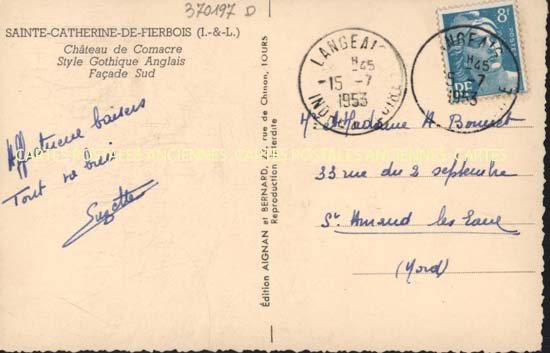 370197 D
SAINTE-CATHERINE-DE-FIERBOIS (I.-&-L.)
Château de Comacre
Style Gothique Anglais
Façade Sud
Affectueux baisers
Tout va bien
Suzette
Édition AIGNAN et BERNARD, 25, rue de Chinon, TOURS
Reproduction interdite
LANGEAIS
H45
15 -7
1953
INDRE LOIRE
8F
RF
LANGEAIS
H45
5 -7
1953
M. et Madame A. Bonnet
33 rue du 2 septembre
St Amand les Eaux
(Nord)
CARTES POSTALES ANCIENNES CARTES POSTALES ANCIENNES CARTES